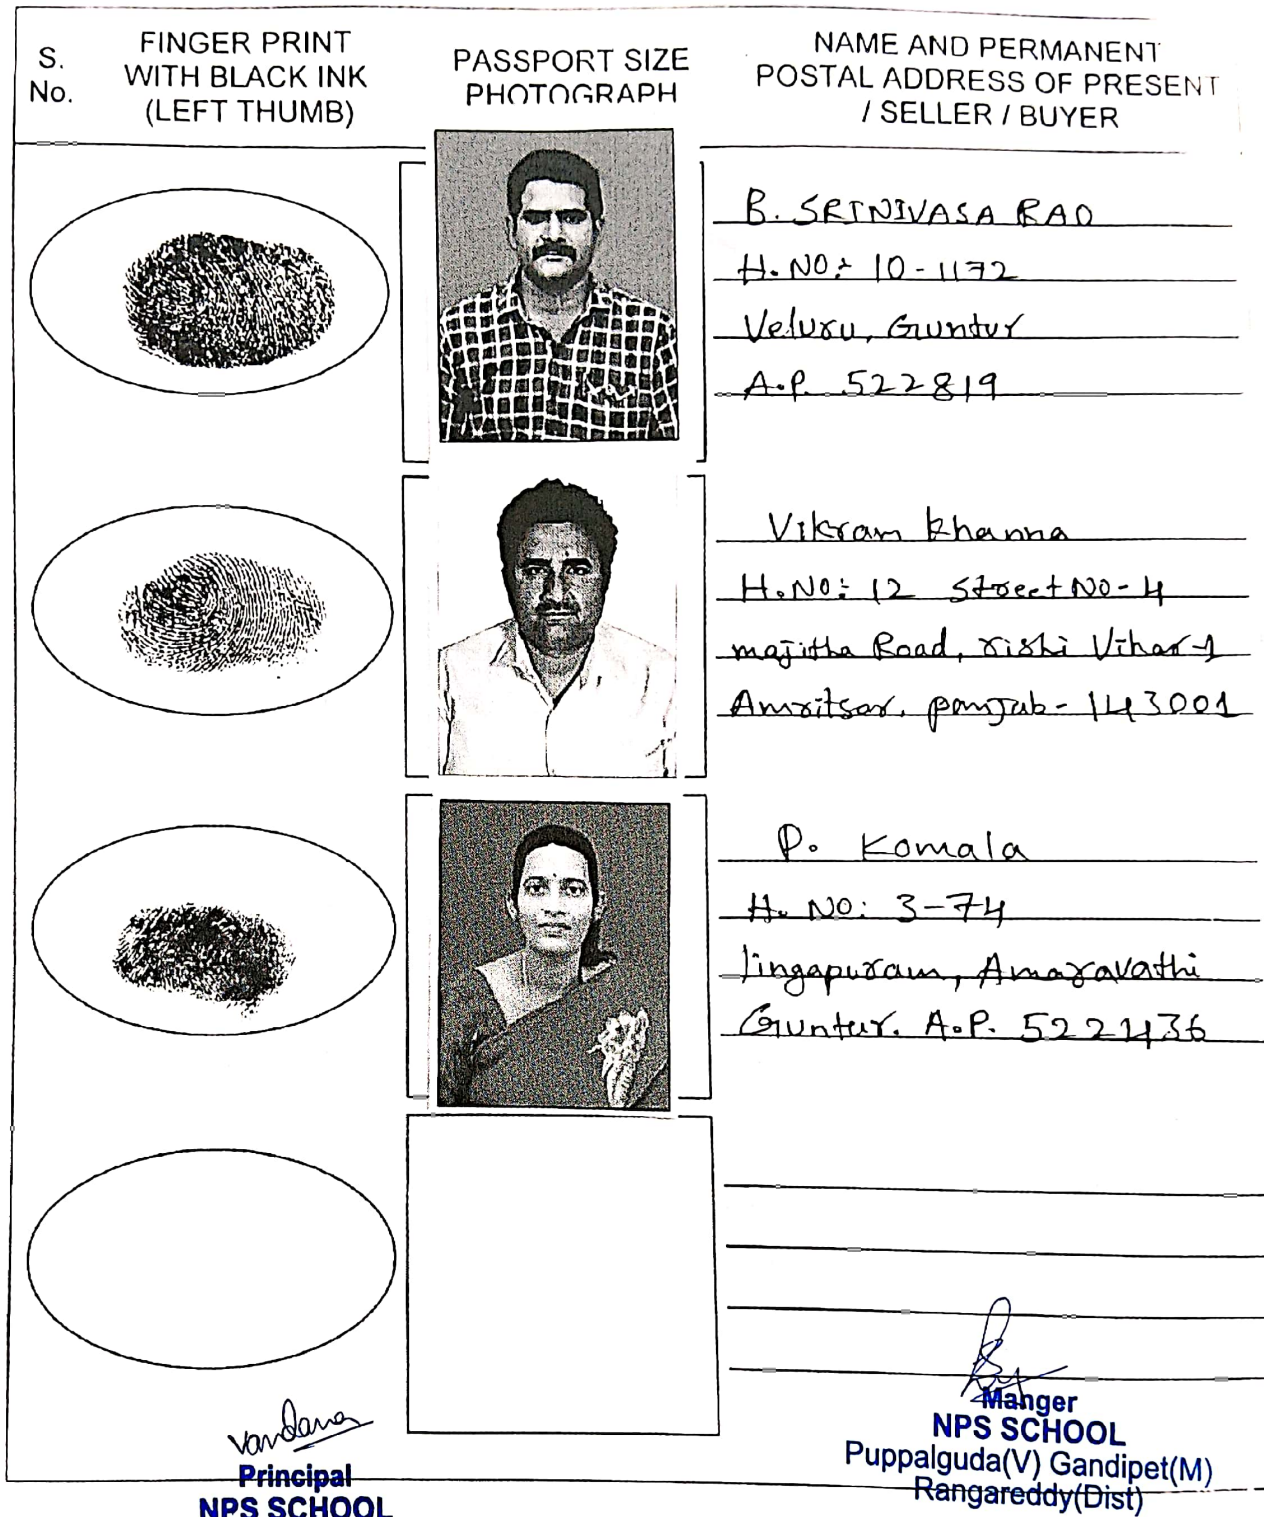 S.
No.
FINGER PRINT
WITH BLACK INK
(LEFT THUMB)
PASSPORT SIZE
PHOTOGRAPH
NAME AND PERMANENT
POSTAL ADDRESS OF PRESENT
/ SELLER / BUYER
B. SRINIVASA RAO
H.NO: 10-1172
Veluru, Guntur
A.P. 522819
Vikram Khanna
H.NO: 12 Street NO-4
majitha Road, rishi Vihar-1
Amritsar. panjab-143001
P. Komala
H. NO: 3-74
lingapuram, Amaravathi
Guntur. A.P. 522436
Vandana
Principal
NPS SCHOOL
Manger
NPS SCHOOL
Puppalguda(V) Gandipet(M)
Rangareddy(Dist)